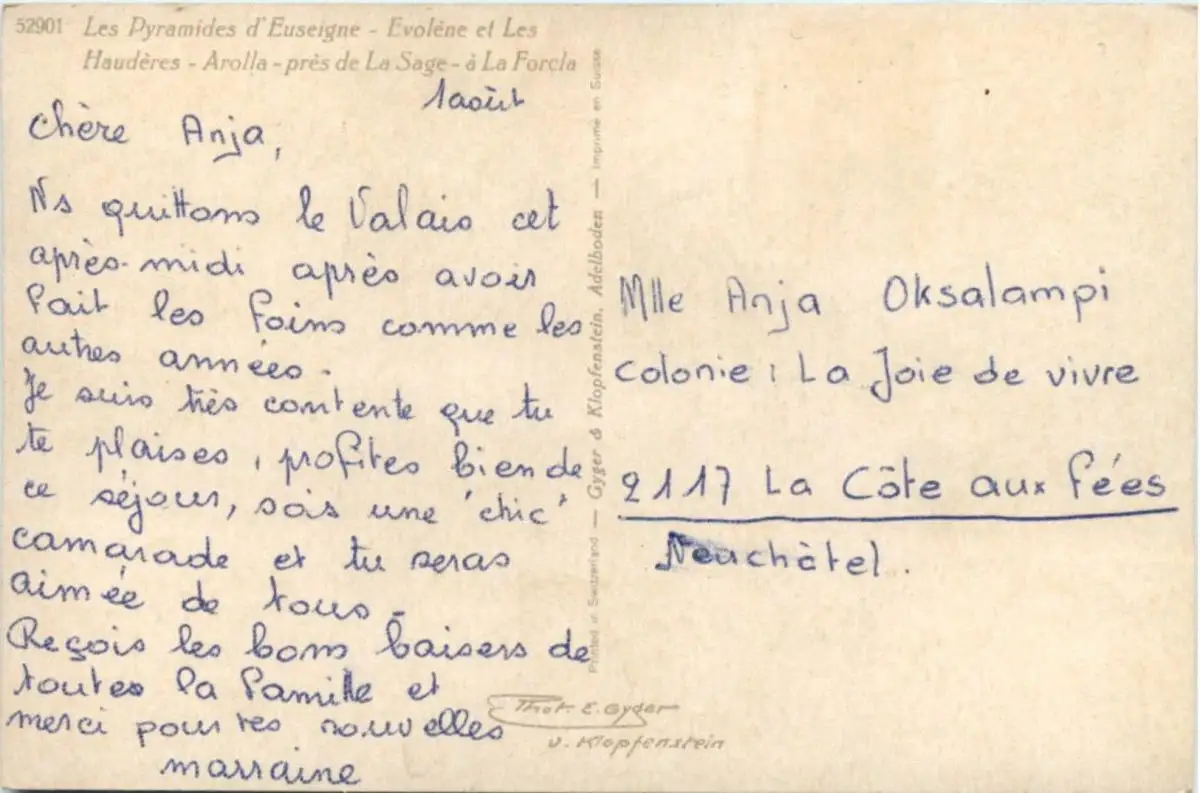 52901 Les Pyramides d'Euseigne - Evolène et Les
Haudères - Arolla - près de La Sage - à La Forcla
1 août
Chère Anja,
Ns quittons le Valais cet
après-midi après avoir
fait les foins comme les
autres années.
Je suis très contente que tu
te plaises, profites bien de
ce séjour, sois une 'chic'
camarade et tu seras
aimée de tous.
Reçois les bons baisers de
toutes la famille et
merci pour tes nouvelles
marraine
Printed in Switzerland — Gyger & Klopfenstein, Adelboden — Imprimé en Suisse
Mlle Anja Oksalampi
Colonie : La Joie de vivre
2117 La Côte aux fées
Neuchâtel.
Phot. E. Gyger
u. Klopfenstein